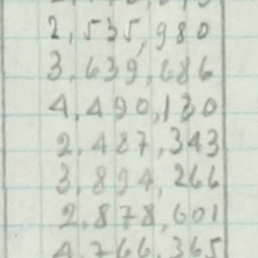 2,535,980
3,639,686
4,490,130
2,487,343
3,894,266
2,878,601
4,766,365